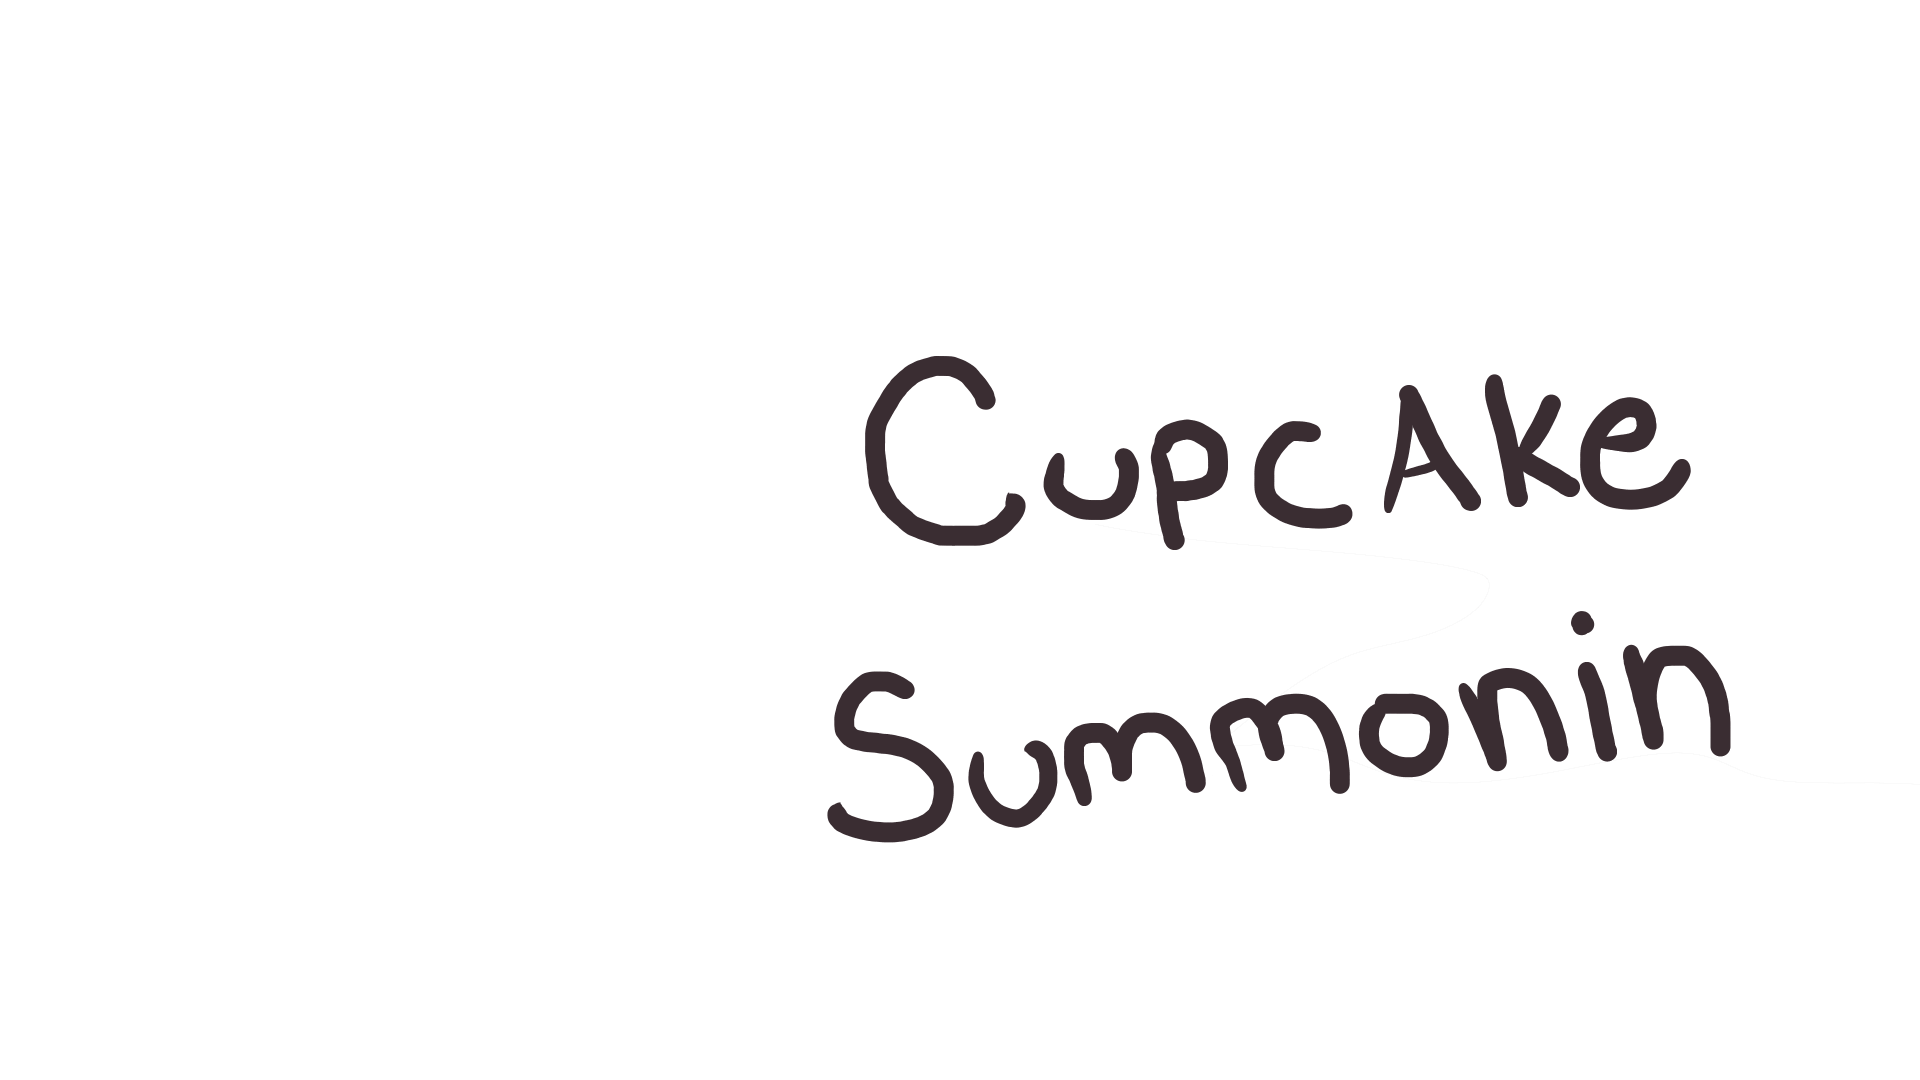 CupcAke
Summonin